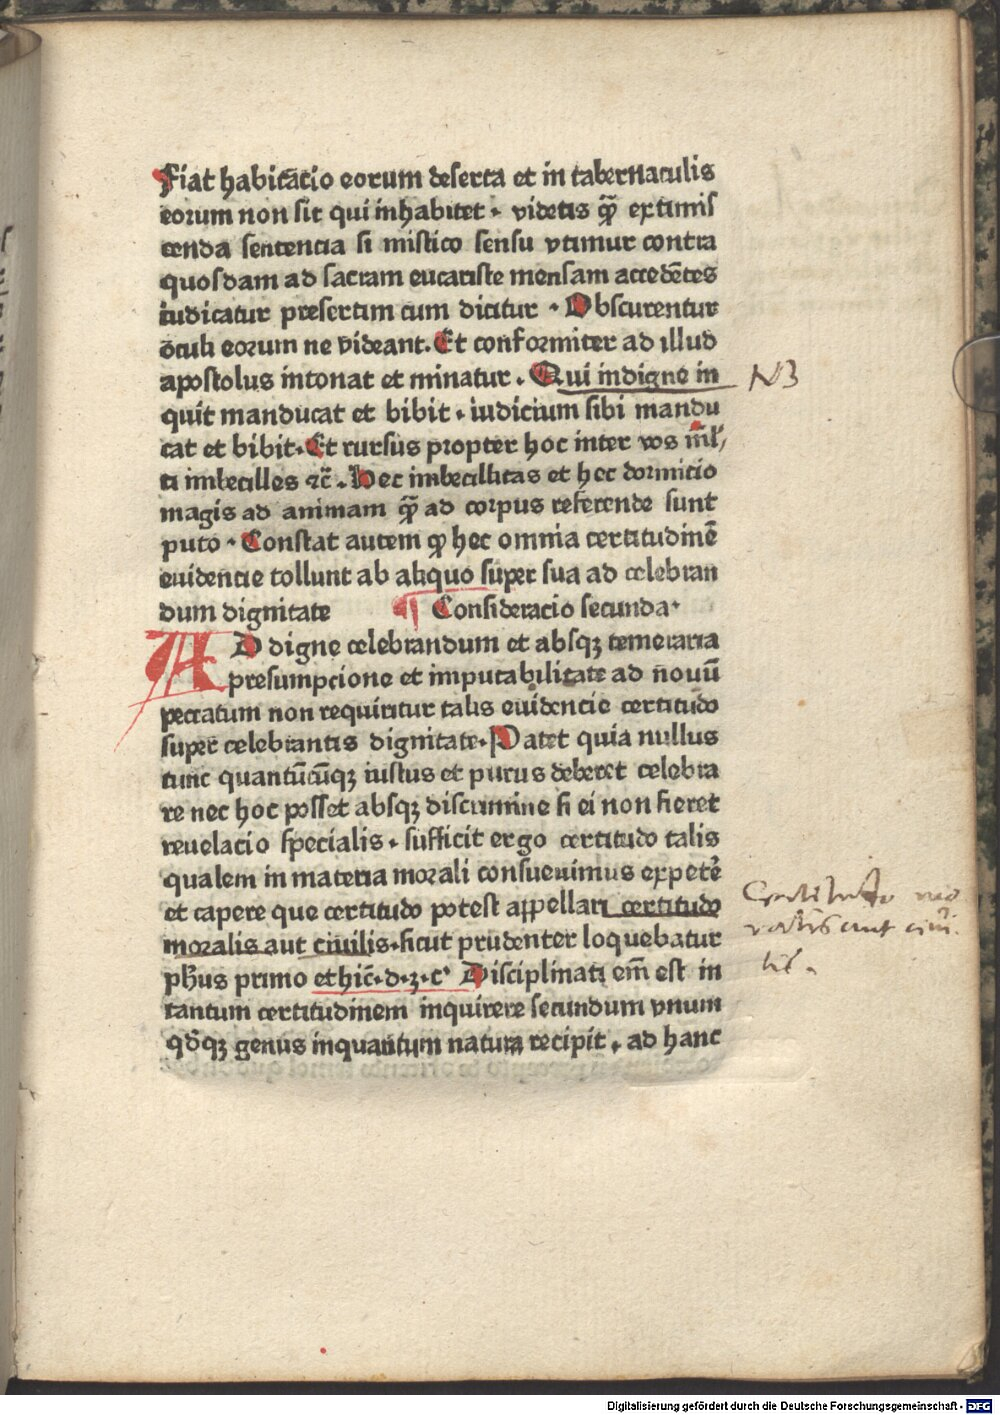 Fiat habitãtio eorum deserta et in tabernaculis
eorum non sit qui inhabitet · videtis qᷓ extimis
cenda sentencia si mistico sensu vtimur contra
quosdam ad sacram eucaristie mensam accedẽtes
iudicatur presertim cum dicitur · Obscurentur
oculi eorum ne videant. Et conformiter ad illud
apostolus intonat et minatur . Qui indigne in
quit manducat et bibit · iudicium sibi mandu
cat et bibit. Et rursus propter hoc inter vos ml̃
ti imbecilles ⁊c̃ . Hec imbecillitas et hec dormicio
magis ad animam qᷓ ad corpus referende sunt
puto · Constat autem ꝙ hec omnia certitudinẽ
euidencie tollunt ab aliquo super sua ad celebran
dum dignitate ¶ Consideracio secunda·
AD digne celebrandum et absqꝫ temeraria
presumpcione et imputabilitate ad nouũ
peccatum non requiritur talis euidencie certitudo
super celebrantis dignitate· Patet quia nullus
tunc quantũcũqꝫ iustus et purus deberet celebra
re nec hoc posset absqꝫ discrimine si ei non fieret
reuelacio specialis · sufficit ergo certitudo talis
qualem in materia morali consueuimus expetẽ
et capere que certitudo potest appellari certitudo
moralis aut ciuilis·sicut prudenter loquebatur
ph̃us primo ethic̃·d·3·c· Disciplinati em̃ est in
tantum certitudinem inquirere secundum vnum
qd̃qꝫ genus inquantum natura recipit · ad hanc
NB
Certitudo mo
ralis aut ciui-
lis.
Digitalisierung gefördert durch die Deutsche Forschungsgemeinschaft - DFG